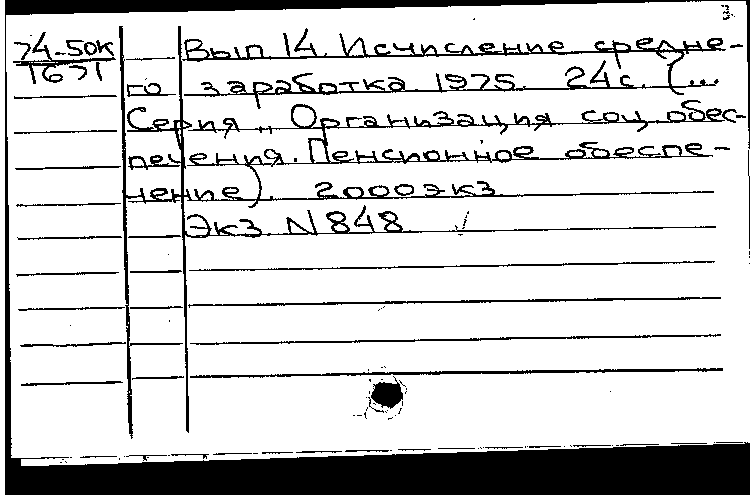 3.
74-50к
1671
Вып 14. Исчисление средне-
го заработка 1975. 24 с. (...
Серия „ Организация соц. обес-
печения. Пенсионное обеспе-
чение). 2000 экз.
Экз. N 848